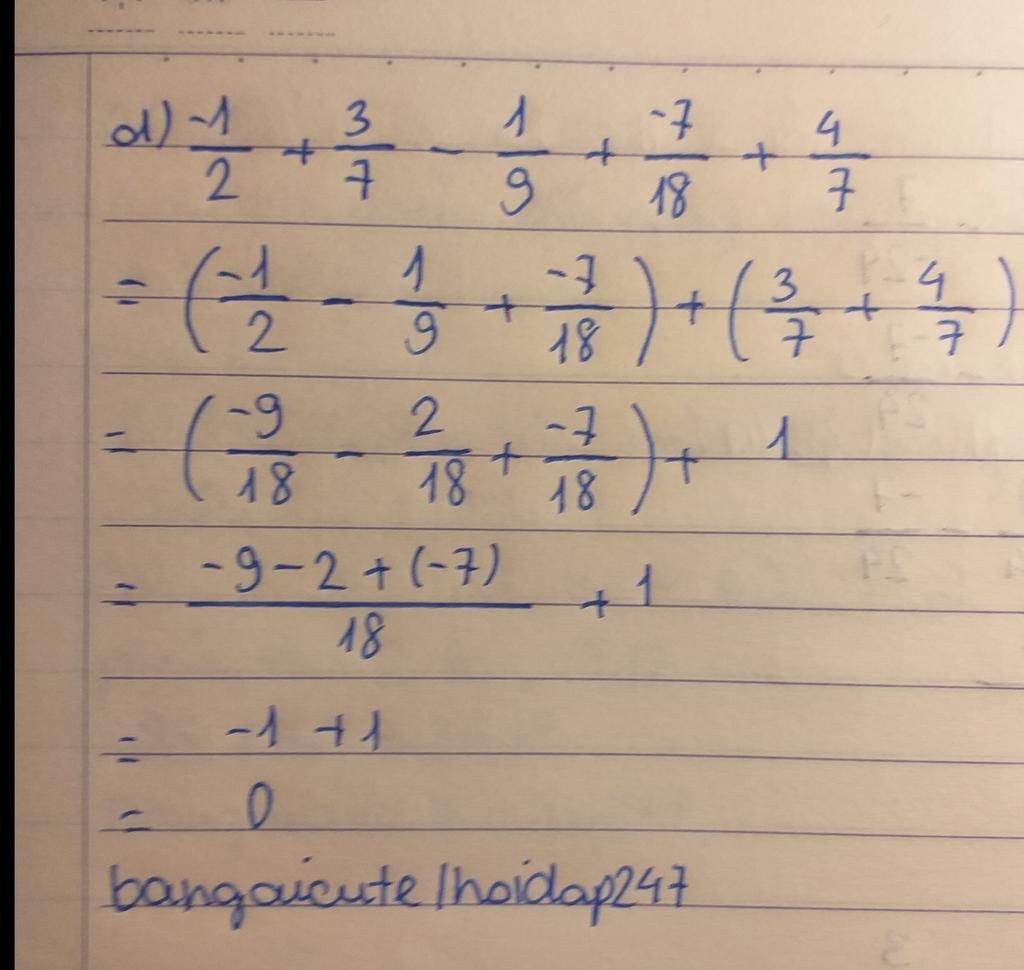 d) -1/2 + 3/7 - 1/9 + -7/18 + 4/7
= (-1/2 - 1/9 + -7/18) + (3/7 + 4/7)
= (-9/18 - 2/18 + -7/18) + 1
= -9-2+(-7)/18 + 1
= -1 +1
= 0
bangaicute/hoidap247